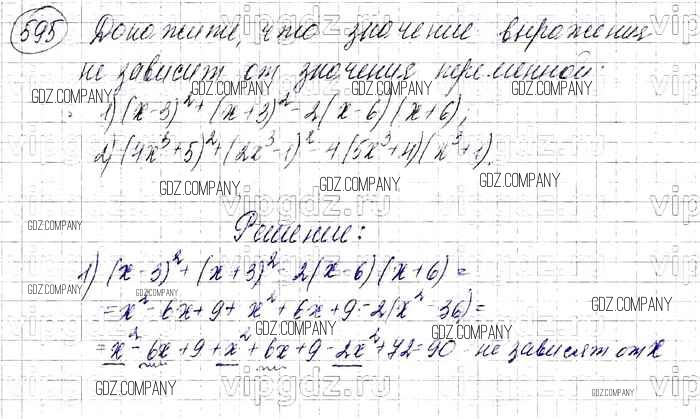 595 Докажите, что значение выражения
не зависит от значения переменной:
GDZ.COMPANY GDZ.COMPANY GDZ.COMPANY
1) (x-3)²+(x+3)²-2(x-6)(x+6);
2) (4x³+5)²+(2x³-1)²-4(5x³+4)(x³+1).
GDZ.COMPANY GDZ.COMPANY GDZ.COMPANY
vipgdz.ru
GDZ.COMPANY
Решение:
1) (x-3)²+(x+3)²-2(x-6)(x+6)=
GDZ.COMPANY GDZ.COMPANY
=x²-6x+9+x²+6x+9-2(x²-36)=
GDZ.COMPANY GDZ.COMPANY GDZ.COMPANY
=x²-6x+9+x²+6x+9-2x²+72=90 - не зависят от x
GDZ.COMPANY GDZ.COMPANY GDZ.COMPANY
vipgdz.ru